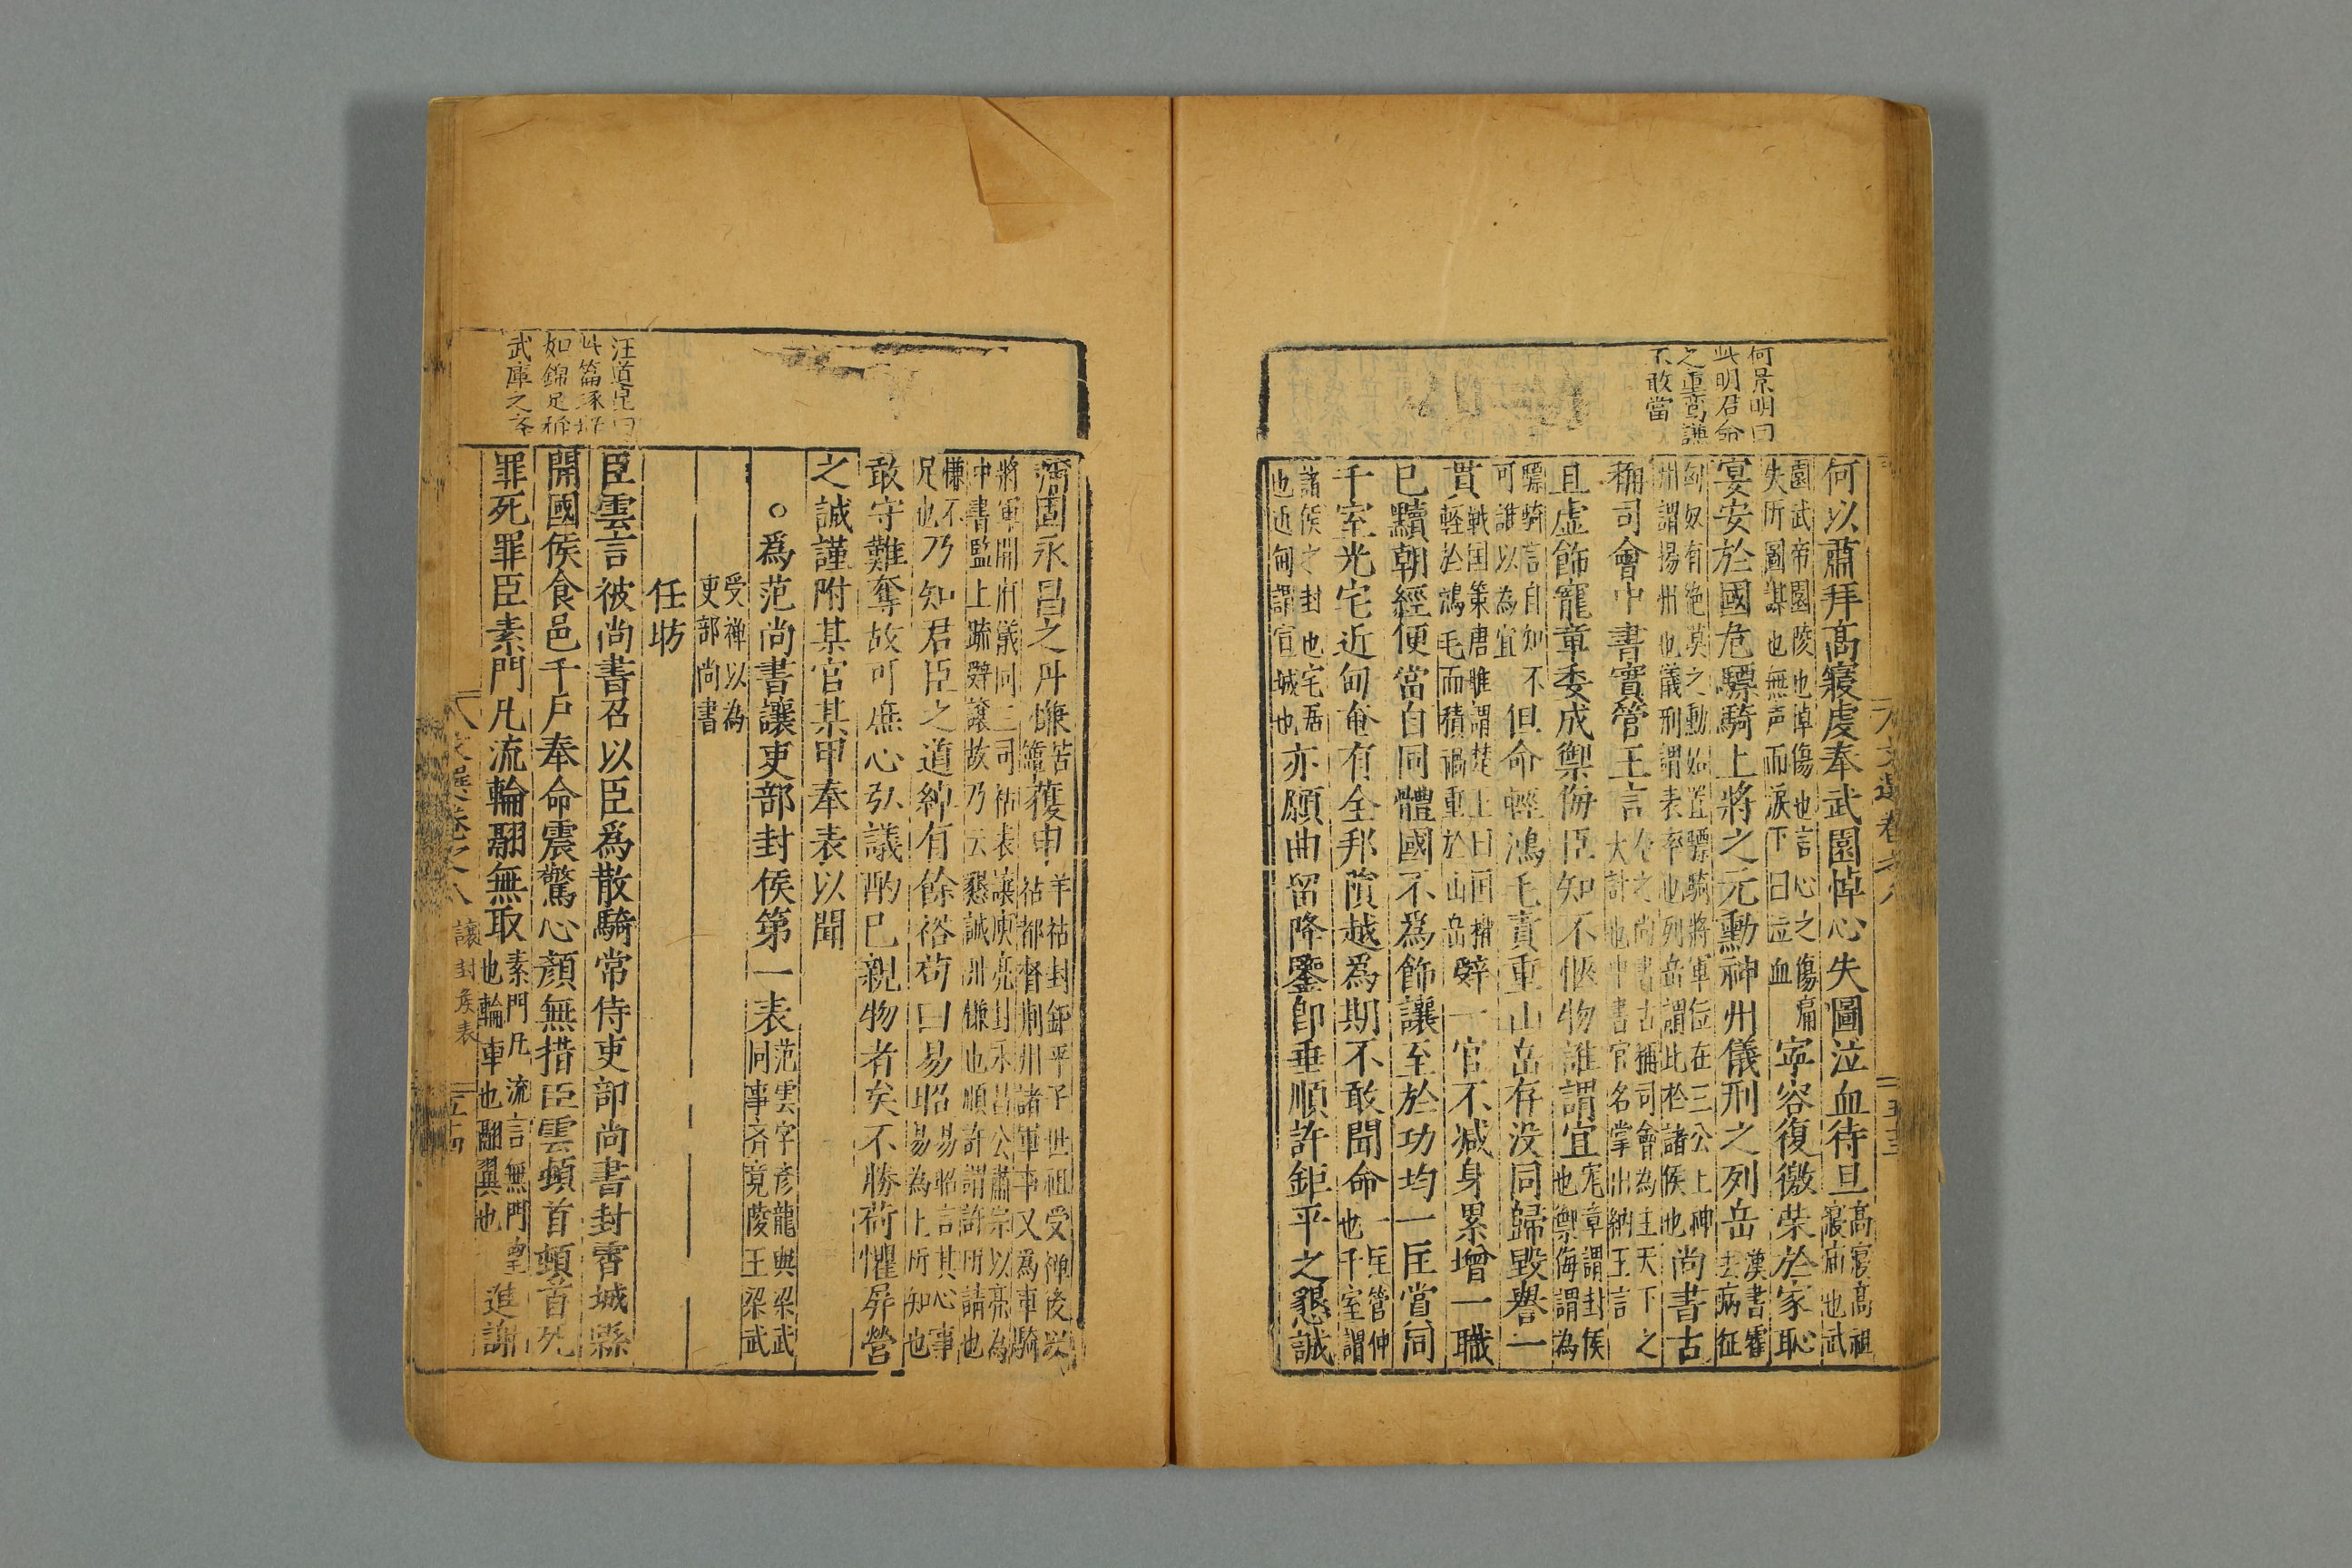 何景明曰
此明君命
之重高謙
不敢當
何以肅拜高寢虔奉武園悼心失圖泣血待旦高寢高祖寢廟也武
園武帝園陵也悼傷也言心之傷痛失所圖謀也無声而淚下曰泣血寧容復徼榮於家恥
宴安於國危驃騎上將之元勳神州儀刑之列岳漢書霍去病征
匈奴有絶莫之勳始置驃騎將軍位在三公上神州謂揚州也儀刑謂表率也列岳謂此於諸侯也尚書古
稱司會中書實管王言今之尚書古稱司會為主天下之大計也中書官名掌出納王言
且虛飾寵章委成禦侮臣知不愜物誰謂宜寵章謂封侯也禦侮謂為
驃騎言自知不可誰以為宜但命輕鴻毛責重山岳存没同歸毀譽一
貫戦国策唐雎謂楚王曰国權輕於鴻毛而積禍重於山岳辭一官不減身累增一職
巳黷朝經便當自同體國不爲飾讓至於功均一匡賞同
千室光宅近甸奄有全邦殞越爲期不敢聞命一匡管仲也千室謂
諸侯之封也宅居也近甸謂宣城也亦願曲留降鑒卽垂順許鉅平之懇誠
文選卷之八
五十三
必固永昌之丹慊苦簟䕶申羊祜封鉅平子世祖受禅後以祜都督荆州諸軍事又為車騎
將軍開府儀同三司祜表讓庾亮封永昌公肅宗以亮為中書監上疏辭讓故乃云懇誠丹慊也順許謂許所請也
慊不足也乃知君臣之道綽有餘裕苟曰易昭易昭言其心事易為上所知也
敢守難奪故可庶心弘議酌巳親物者矣不勝荷懼屏營
之誠謹附某官某甲奉表以聞
○爲范尚書讓吏部封侯第一表范雲字彦龍與梁武同事齊竟陵王梁武
受禅以為吏部尚書
任昉
臣雲言被尚書召以臣爲散騎常侍吏部尚書封霄城縣
開國侯食邑千戶奉命震驚心顏無措臣雲頓首頓首死
罪死罪臣素門凡流輪翮無取素門凡流言無門望也輪車也翮翼也進謝
汪道昆曰
此篇琢
如錦足稱
武庫之
文選卷之八
讓封矦表
五十四